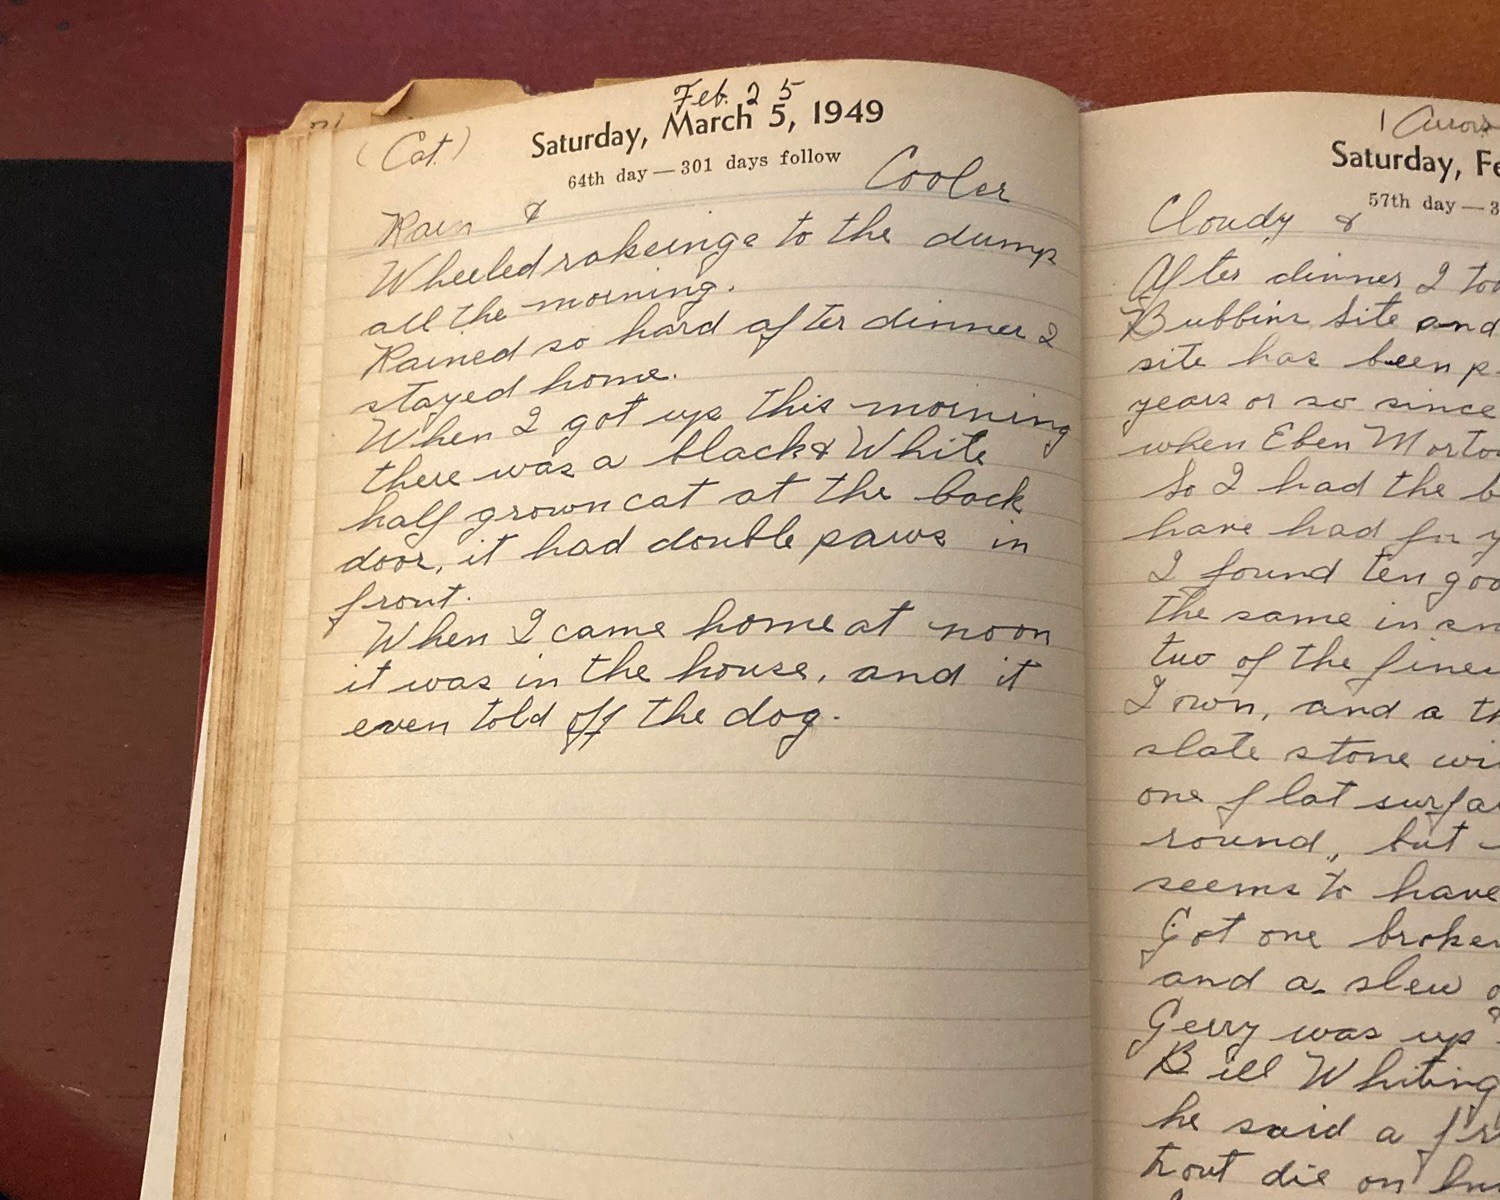 Feb. 25
(Cat.)
Saturday, March 5, 1949
64th day — 301 days follow
Rain & Cooler
Wheeled rakeings to the dump
all the morning.
Rained so hard after dinner I
stayed home.
When I got up this morning
there was a black & White
half grown cat at the back
door, it had double paws in
front.
When I came home at noon
it was in the house, and it
even told off the dog.
Saturday, Fe
57th day — 3
Cloudy &
After dinner I
Site and
site has been
years or so since
when Eben
So I had the
have had for
I found ten
the same in
two of the
I own, and a
slate stone
one flat
round, but
seems to have
Got one
and a slew
Gerry was up
Bill Whiting
he said a
trout die on